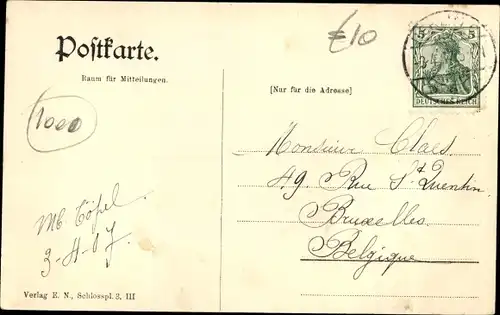 Postkarte.
Raum für Mitteilungen.
£10
5 5
DEUTSCHES REICH
[Nur für die Adresse]
1000
Monsieur Claes.
49 Rue St Quentin
Bruxelles.
Belgique
3-4-07
Verlag E. N., Schlosspl. 3, III